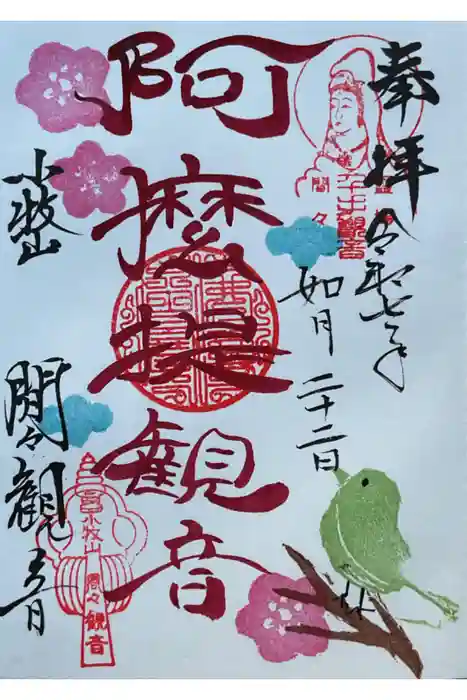 奉拝
令和七年
如月二十二日
阿麼提観音
小牧山
間々観音
間々
小牧山
間々観音